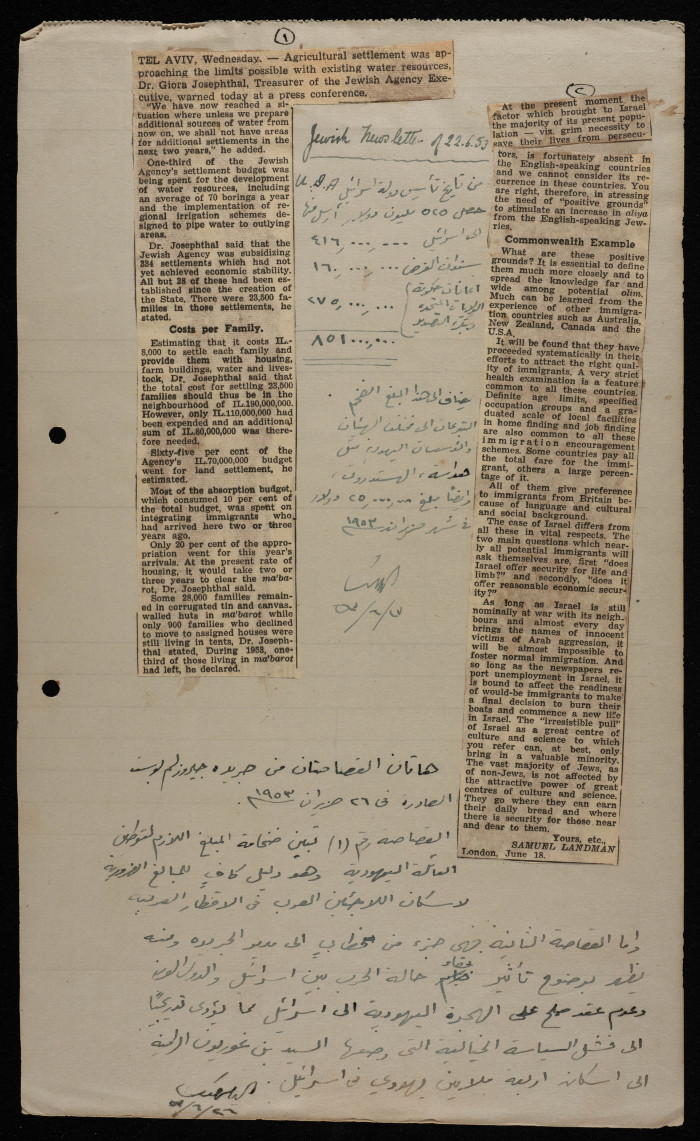 (١)
TEL AVIV, Wednesday. — Agricultural settlement was ap-
proaching the limits possible with existing water resources,
Dr. Giora Josephthal, Treasurer of the Jewish Agency Exe-
cutive, warned today at a press conference.
"We have now reached a si-
tuation where unless we prepare
additional sources of water from
now on, we shall not have areas
for additional settlements in the
next two years," he added.
One-third of the Jewish
Agency's settlement budget was
being spent for the development
of water resources, including
an average of 70 borings a year
and the implementation of re-
gional irrigation schemes de-
signed to pipe water to outlying
areas.
Dr. Josephthal said that the
Jewish Agency was subsidizing
334 settlements which had not
yet achieved economic stability.
All but 28 of these had been es-
tablished since the creation of
the State. There were 23,500 fa-
milies in those settlements, he
stated.
Costs per Family.
Estimating that it costs IL.-
8,000 to settle each family and
provide them with housing,
farm buildings, water and lives-
tock, Dr. Josephthal said that
the total cost for settling 23,500
families should thus be in the
neighbourhood of IL.190,000,000.
However, only IL.110,000,000 had
been expended and an additional
sum of IL.80,000,000 was there-
fore needed.
Sixty-five per cent of the
Agency's IL.70,000,000 budget
went for land settlement, he
estimated.
Most of the absorption budget,
which consumed 10 per cent of
the total budget, was spent on
integrating immigrants who
had arrived here two or three
years ago.
Only 20 per cent of the appro-
priation went for this year's
arrivals. At the present rate of
housing, it would take two or
three years to clear the ma'ba-
rot, Dr. Josephthal said.
Some 28,000 families remain-
ed in corrugated tin and canvas-
walled huts in ma'barot while
only 900 families who declined
to move to assigned houses were
still living in tents, Dr. Joseph-
thal stated. During 1953, one-
third of those living in ma'barot
had left, he declared.
Jewish Newslett. of 22.6.53
من تاريخ تأسيس دولة اسرائيل U.S.A
حصل ٥٢٥ مليون دولار ارسل منها
الى اسرائيل ٤١٦,٠٠٠,٠٠٠
سندات القرض ١٦٠,٠٠٠,٠٠٠
اعانات
الولايات المتحدة ٢٧٥,٠٠٠,٠٠٠
٨٥١,٠٠٠,٠٠٠
يضاف الى هذا المبلغ الضخم
التبرعات الى مختلف الهيئات
والمؤسسات اليهودية مثل
هداسا، الهستدروت،
مبلغ ٢٥,٠٠٠,٠٠٠ دولار
في شهر حزيران ١٩٥٣
(٢)
At the present moment the
factor which brought to Israel
the majority of its present popu-
lation — viz. grim necessity to
save their lives from persecu-
tors, is fortunately absent in
the English-speaking countries
and we cannot consider its re-
currence in these countries. You
are right, therefore, in stressing
the need of "positive grounds"
to stimulate an increase in aliya
from the English-speaking Jew-
ries.
Commonwealth Example
What are these positive
grounds? It is essential to define
them much more closely and to
spread the knowledge far and
wide among potential olim.
Much can be learned from the
experience of other immigra-
tion countries such as Australia,
New Zealand, Canada and the
U.S.A.
It will be found that they have
proceeded systematically in their
efforts to attract the right qual-
ity of immigrants. A very strict
health examination is a feature
common to all these countries.
Definite age limits, specified
occupation groups and a gra-
duated scale of local facilities
in home finding and job finding
are also common to all these
immigration encouragement
schemes. Some countries pay all
the total fare for the immi-
grant, others a large percen-
tage of it.
All of them give preference
to immigrants from Britain be-
cause of language and cultural
and social background.
The case of Israel differs from
all these in vital respects. The
two main questions which near-
ly all potential immigrants will
ask themselves are, first "does
Israel offer security for life and
limb?" and secondly, "does it
offer reasonable economic secur-
ity?"
As long as Israel is still
nominally at war with its neigh-
bours and almost every day
brings the names of innocent
victims of Arab aggression, it
will be almost impossible to
foster normal immigration. And
so long as the newspapers re-
port unemployment in Israel, it
is bound to affect the readiness
of would-be immigrants to make
a final decision to burn their
boats and commence a new life
in Israel. The "irresistible pull"
of Israel as a great centre of
culture and science to which
you refer can, at best, only
bring in a valuable minority.
The vast majority of Jews, as
of non-Jews, is not affected by
the attractive power of great
centres of culture and science.
They go where they can earn
their daily bread and where
there is security for those near
and dear to them.
Yours, etc.,
SAMUEL LANDMAN
London, June 18.
هاتان القصاصتان من جريدة جيروزلم بوست
الصادرة في ٢٦ حزيران ١٩٥٣.
القصاصة رقم (١) تبين ضخامة المبلغ اللازم لتوطين
العائلة اليهودية وهو دليل كاف للمبالغ الضرورية
لاسكان اللاجئين العرب في الاقطار العربية
واما القصاصة الثانية فهي جزء من خطاب الى مدير الجريدة ومنه
نظهر بوضوح تأثير بقاء حالة الحرب بين اسرائيل والدول العربية
وعدم عقد صلح على الهجرة اليهودية الى اسرائيل مما يؤدي تدريجيا
الى فشل السياسة الخيالية التي وضعها السيد بن غوريون الرامية
الى اسكان اربعة ملايين يهودي في اسرائيل.